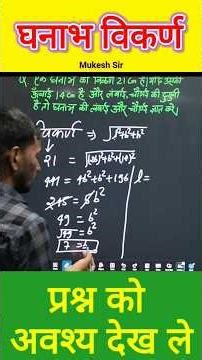 घनाभ विकर्ण
Mukesh Sir
Q. एक घनाभ का विकर्ण 21 cm है। यदि उसकी
ऊँचाई 14 cm है और लंबाई, चौड़ाई की दुगुनी
है तो घनाभ की लंबाई और चौड़ाई ज्ञात करें।
विकर्ण ⇒ √l²+b²+h²
21 = √(2b)²+b²+(14)²
441 = 4b²+b²+196 l=
245 = 5b²
49 = b²
√49 = b²
7 = b
प्रश्न को
अवश्य देख ले